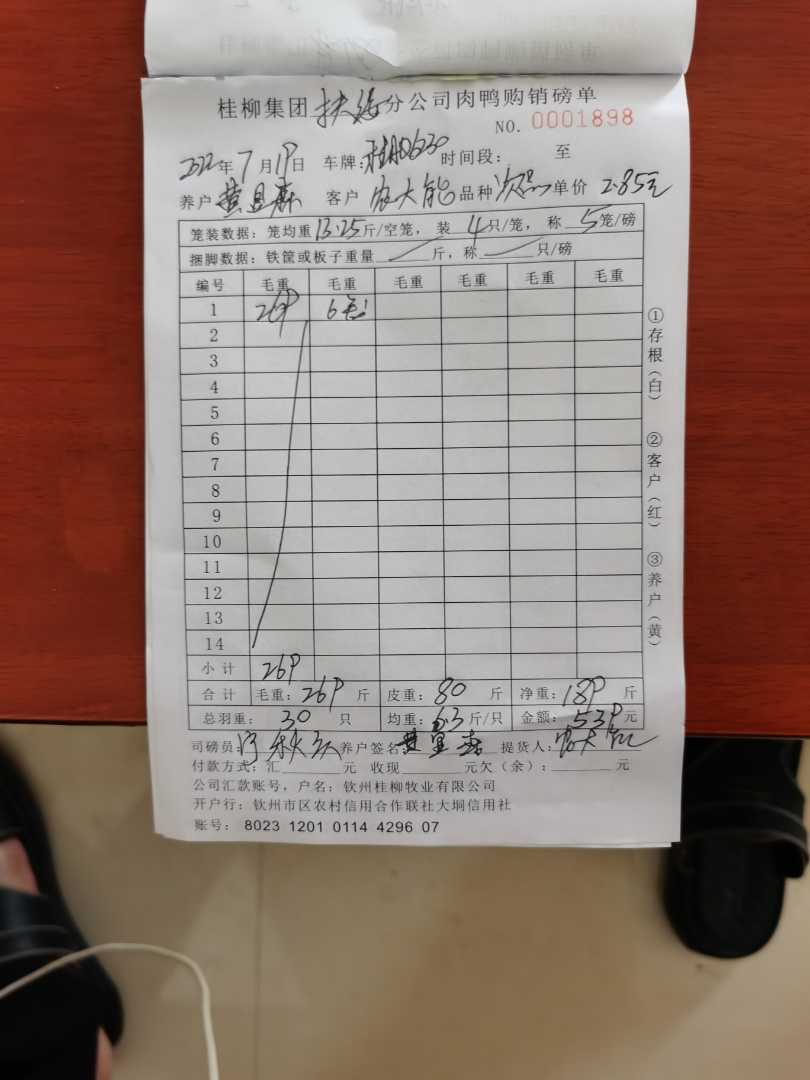 桂柳集团扶绥分公司肉鸭购销磅单
NO. 0001898
2022年7月19日 车牌: 时间段: 至
养户 黄 客户 农大能 品种 次品 单价 2.85元
笼装数据: 笼均重13.25斤/空笼, 装4只/笼, 称5笼/磅
捆脚数据: 铁筐或板子重量 斤, 称 只/磅
编号 毛重 毛重 毛重 毛重 毛重 毛重
1 269 6
2
3
4
5
6
7
8
9
10
11
12
13
14
小计 269
合计 毛重: 269 斤 皮重: 80 斤 净重: 189 斤
总羽重: 30 只 均重: 6.3 斤/只 金额: 539 元
司磅员: 养户签名 黄 提货人: 农大能
付款方式: 汇 元 收现 元欠(余): 元
公司汇款账号, 户名: 钦州桂柳牧业有限公司
开户行: 钦州市区农村信用合作联社大垌信用社
账号: 8023 1201 0114 4296 07
①存根(白)
②客户(红)
③养户(黄)